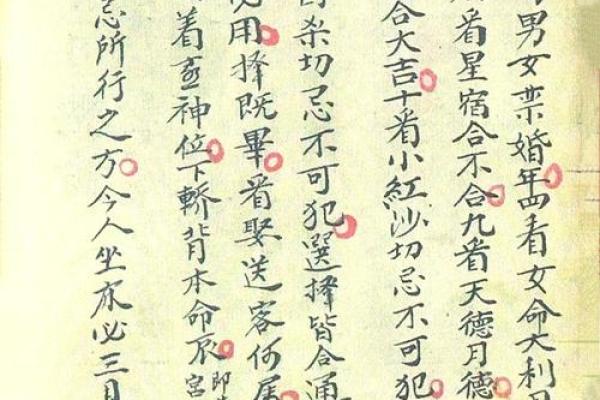 男女禁婚年四看女命大利月
看星宿合不合九看天德月德
合大吉十看小紅沙切忌不可犯
杀切忌不可犯選择皆合通
用择既畢看娶送客何属
着喜神位下轎背本命辰即
宮
忌所行之方今人坐床必三日